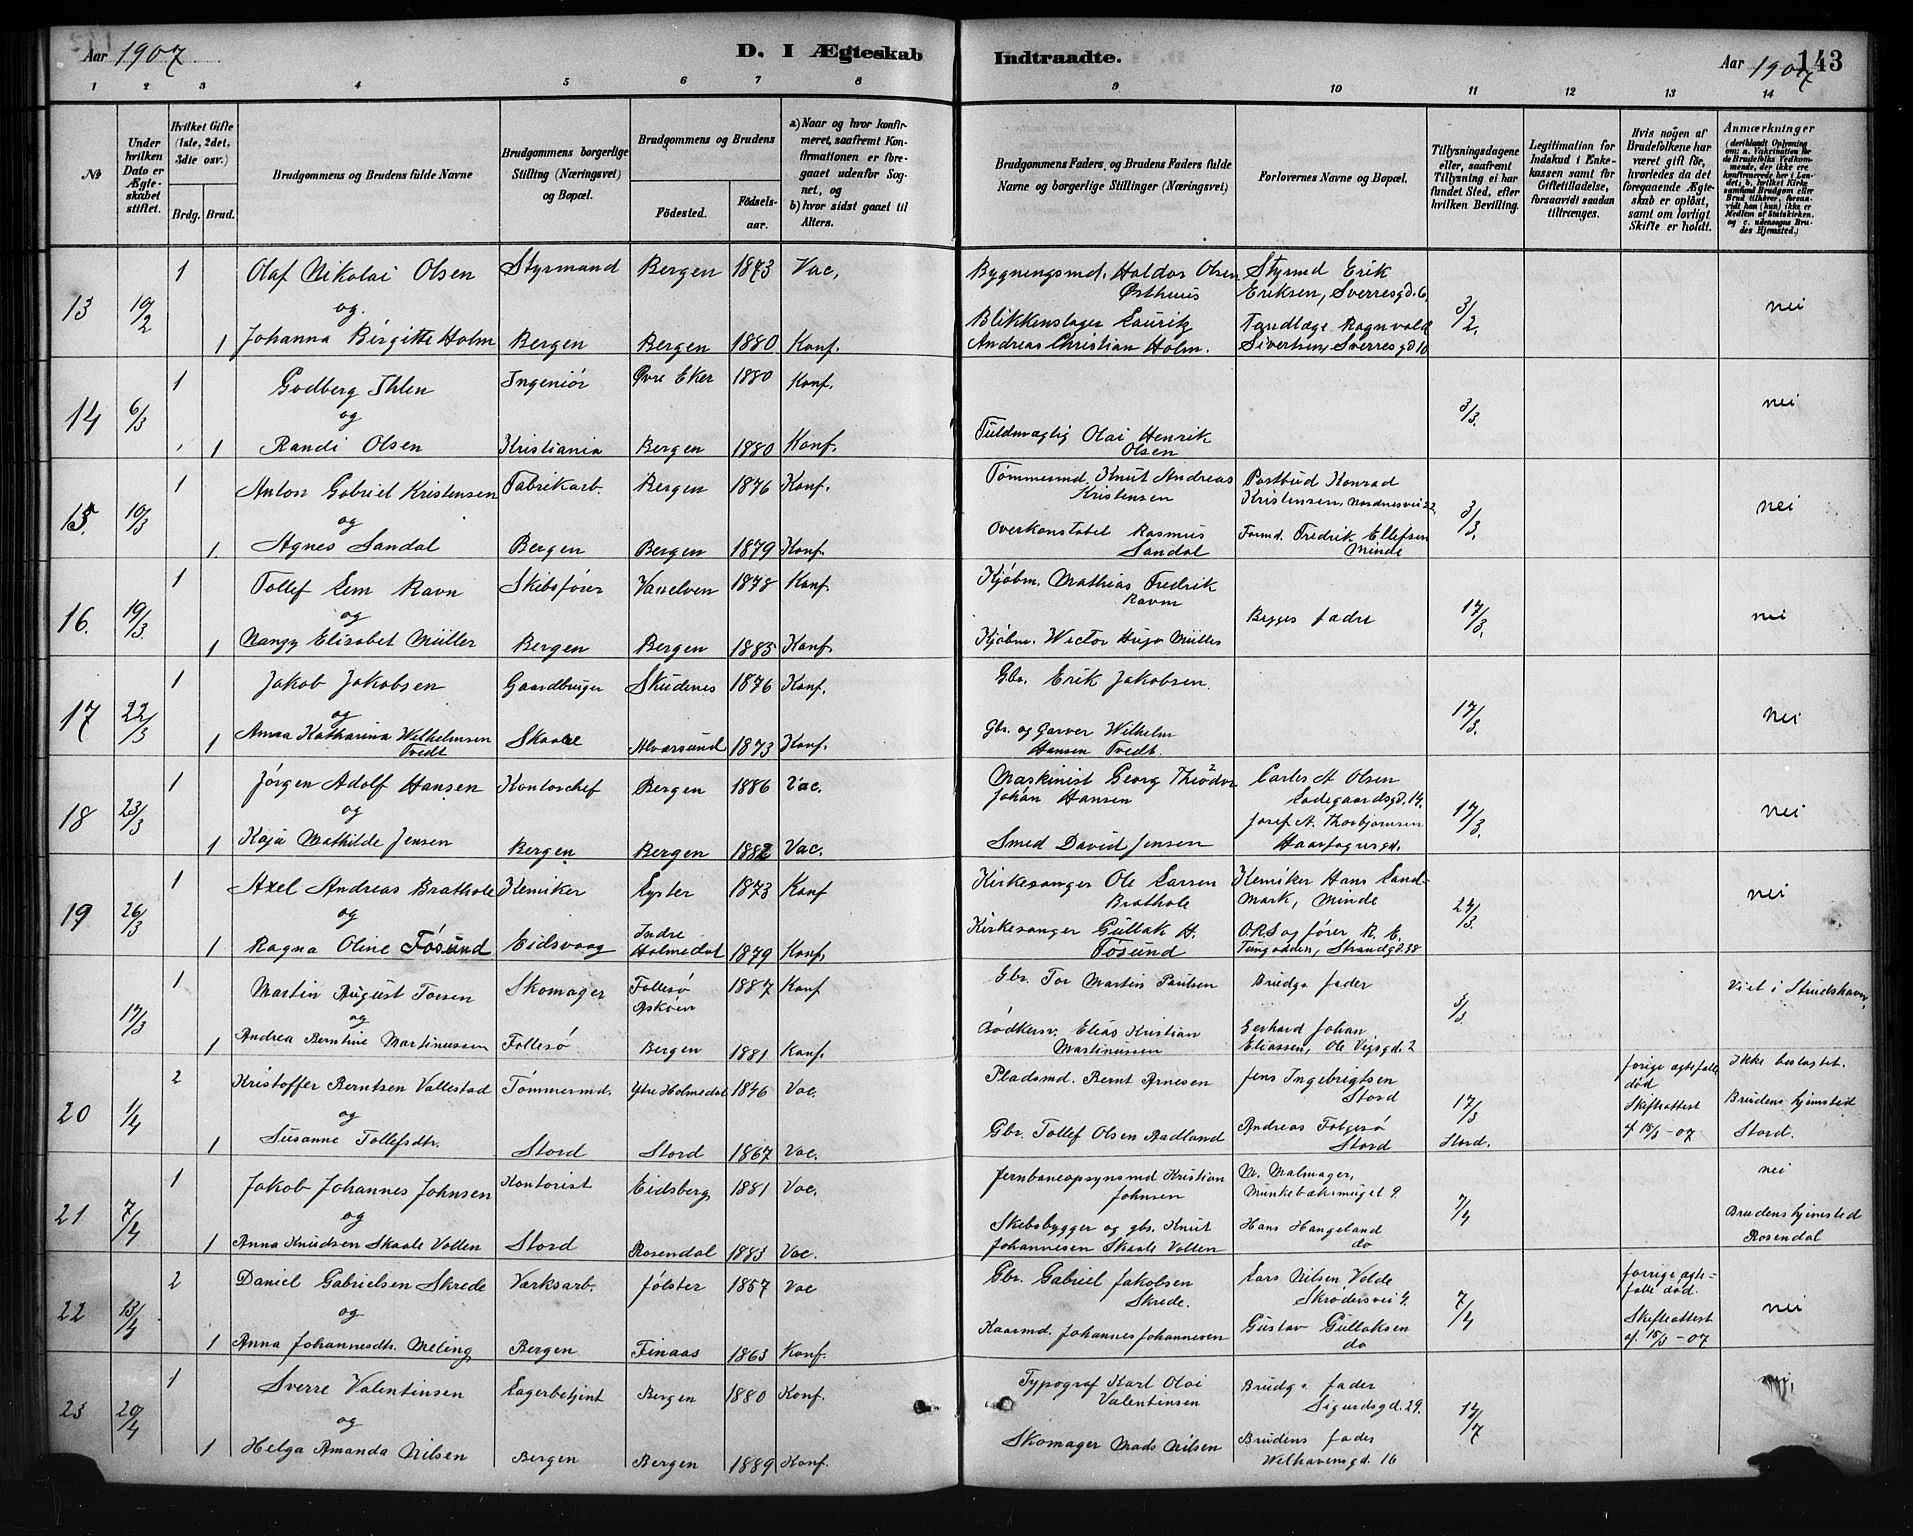 Aar 1907
D. I Ægteskab
Indtraadte.
Aar 1907
143
1 2 3 4 5 6 7 8 9 10 11 12 13 14
No
Under hvilken Dato er Ægteskabet stiftet.
Hvilket Gifte (1ste, 2det, 3die osv.)
Brdg. Brud.
Brudgommens og Brudens fulde Navne
Brudgommens borgerlige Stilling (Næringsvei) og Bopæl.
Brudgommens og Brudens
Födested.
Födselsaar.
a) Naar og hvor konfirmeret, saafremt Konfirmationen er foregaaet udenfor Sognet, og
b) hvor sidst gaaet til Alters.
Brudgommens Faders, og Brudens Faders fulde Navne og borgerlige Stillinger (Næringsvei)
Forlovernes Navne og Bopæl.
Tillysningsdagene eller, saafremt Tillysning ei har fundet Sted, efter hvilken Bevilling.
Legitimation for Indskud i Enkekassen samt for Giftetilladelse, forsaavidt saadan tiltrænges.
Hvis nogen af Brudefolkene har været gift för, hvorledes da det foregaaende Ægteskab er oplöst, samt om lovligt Skifte er holdt.
Anmærkninger (deriblandt Oplysning om: a. Vakcination for de Brudefolks Vedkommende, der ikke ere konfirmerede her i Landet, b. hvilket Kirkesamfund Brudgom eller Brud tilhörer, forsaavidt han (hun) ikke er Medlem af Statskirken. og c. udensogns Brudes Hjemsted.)
13 10/2 1 Olaf Nikolai Olsen Styrmand Bergen 1873 Vac. Bygningsmd. Haldor Olsen Østhuus Styrmd Erik Eriksen, Sverresgd. 6 3/2. nei
og
1 Johanna Birgitte Holm Bergen Bergen 1880 Konf. Blikkenslager Lauritz Andreas Christian Holm. Tandlæge Ragnvald Sivertsen, Sverresgd 10
14 6/3 1 Godberg Ihlen Ingeniör Øvre Eker 1880 Konf. 3/3. nei
og
1 Randi Olsen Kristiania Bergen 1880 Konf. Fuldmægtig Olai Henrik Olsen
15. 10/3 1 Anton Gabriel Kristensen Fabrikarb. Bergen 1876 Konf. Tömmermd. Knut Andreas Kristensen Postbud Konrad Kristensen, Nordnesvei 22 3/3. nei
og
1 Agnes Sandal Bergen Bergen 1879 Konf. Overkonstabel Rasmus Sandal Formd. Fredrik Ellefsen Minde
16. 19/3. 1 Tollef Lem Ravn Skibsförer Vanelven 1878 Konf. Kjöbm. Mathias Fredrik Ravn Begges fader 17/3. nei
og
1 Nangy Elisabet Müller Bergen Bergen 1885 Konf. Kjöbm. Wictor Hugo Müller
17 22/3 1 Jakob Jakobsen Gaardbruger Skudenes 1876 Konf. Gbr. Erik Jakobsen. 17/3. nei
og
1 Anna Katharina Wilhelmsen Tvedt Skaale Alversund 1873 Konf. Gbr. og Garver Wilhelm Hansen Tvedt.
18 23/3 1 Jörgen Adolf Hansen Kontorchef Bergen 1886 Vac. Maskinist Georg Theodor Johan Hansen Carles A Olsen Ladegaardsgd. 14. 17/3. nei
og
1 Kaja Mathilde Jensen Bergen Bergen 1882 Vac. Smed David Jensen Josef A. Thorbjörnsen Haarfagersgd.
19 26/3 1 Axel Andreas Brathole Kemiker Lyster 1873 Konf Kirkesanger Ole Larsen Brathole Kemiker Hans Landmark, Minde 24/3. nei
og
1 Ragna Oline Fösund Eidsvaag Indre Holmedal 1879 Konf. Kirkesanger Gullak H. Fösund O.R.Sagförer R. E. Tungodden, Strandgd. 38
17/3 1 Martin August Torsen Skomager Follesö Asköen 1887 Konf Gbr. Tor Martin Paulsen Brudgs fader 3/3. Viet i Strudshavn,
og
1 Andrea Berntine Martinussen Follesö Bergen 1881 Konf. Bödkersv. Elias Kristian Martinussen Gerhard Johan Eliassen, Ole Vigsgd. 2
20 1/4 2 Kristoffer Berntsen Vallestad Tömmermd. Ytre Holmedal 1846 Vac. Pladsmd. Bernt Arnesen Jens Ingebrigtsen Stord 17/3 Stord. forige egtefælle död Skifteattest af 15/3-07 Ikke beslægtet. Brudens hjemsted Stord.
og
1 Susanne Tollefsdtr. Stord Stord 1867 Vac. Gbr. Tollef Olsen Aadland Andreas Folgesö Stord
21 7/4 1 Jakob Johannes Johnsen Kontorist Eidsberg 1881 Vac. Jernbaneopsynsmd Kristian Johnsen M. Malmager, Munkebæksmuget 9. 7/4 nei Brudens hjemsted Rosendal
og
1 Anna Knudsen Skaale Vollen Stord Rosendal 1883 Vac. Skibsbygger og gbr. Knut Johannesen Skaale Vollen Hans Hangeland do
22 13/4 2 Daniel Gabrielsen Skrede Værksarb. Jölster 1857 Vac Gbr. Gabriel Jakobsen Skrede. Lars Nilsen Volde Skrödersvei 4. 7/4 forrige egtefælle död. Skifteattest af. 15/3-07 nei
og
1 Anna Johannesdtr. Meling Bergen Finaas 1863 Konf. Kaarmd. Johannes Johannesen Gustav Gullaksen do
23 20/4 1 Sverre Valentinsen Lagerbetjent Bergen 1880 Konf. Typograf Karl Olai Valentinsen Brudgs fader Sigurdsgd. 29. 14/7 nei,
og
1 Helga Amanda Nilsen Bergen Bergen 1889 Konf. Skomager Mads Nilsen Brudens fader Welhavensgd. 16